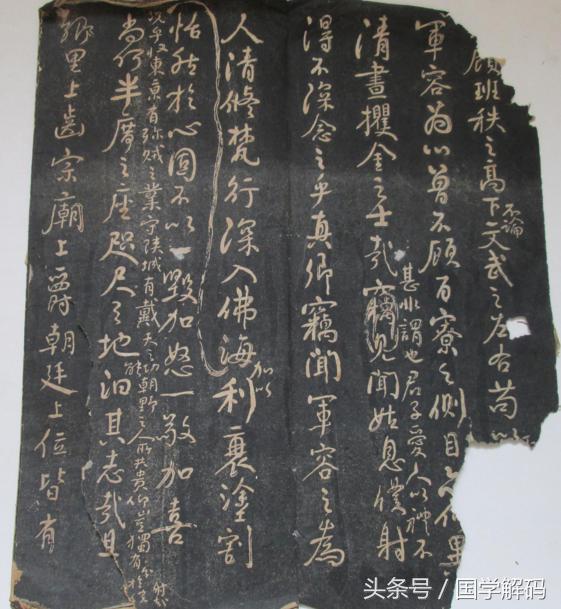 顧班秩之高下不論文武之左右苟以
軍容為心曾不顧百寮之側目亦何異
清晝攫金之士哉
甚非謂也君子愛人以禮不
聞姑息僕射
得不深念之乎真卿竊聞軍容之為
人清修梵行深入佛海加以利衰塗割
恬然於心固不以一毀加怒一敬加喜
況乎收東京有殄賊之業守陝城有戴天之功朝野之人所共貴仰豈獨有分於僕射哉
尚何半席之座咫尺之地能汨其志哉且
鄉里上齒宗廟上爵朝廷上位皆有
头条号 / 国学解码